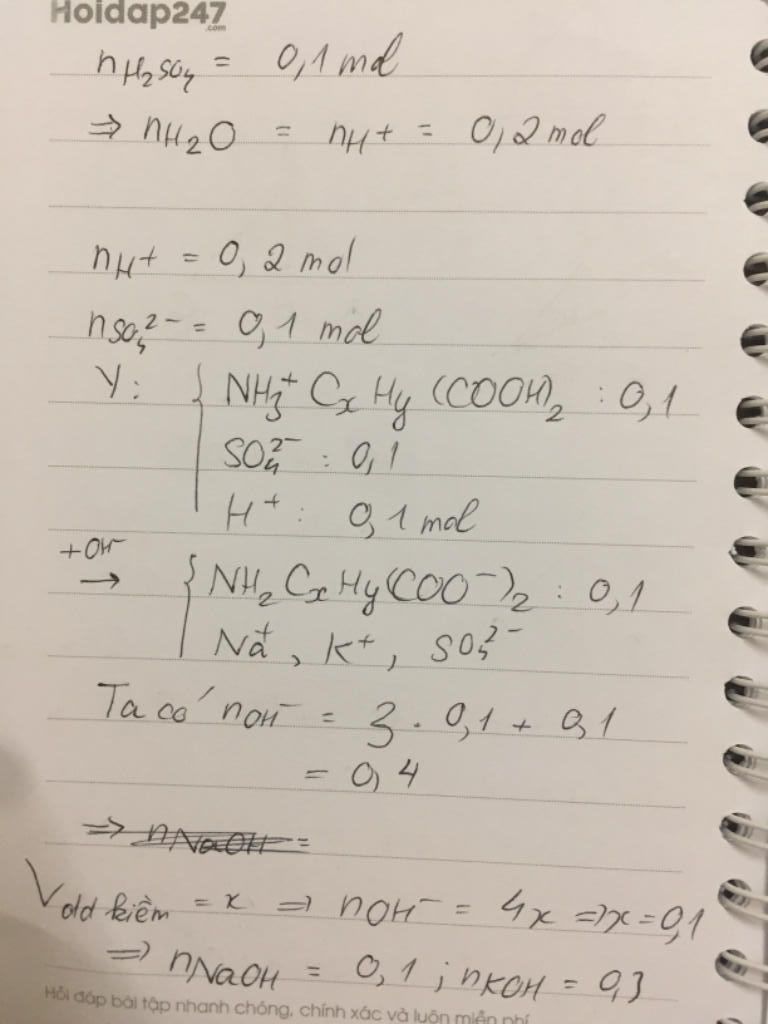 Hoidap247
.com
nH₂SO₄ = 0,1 mol
⇒ nH₂O = nH⁺ = 0,2 mol
nH⁺ = 0,2 mol
nSO₄²⁻ = 0,1 mol
Y: { NH₃⁺CxHy(COOH)₂ : 0,1
SO₄²⁻ : 0,1
H⁺ : 0,1 mol
+OH⁻ → { NH₂CxHy(COO⁻)₂ : 0,1
Na⁺, K⁺, SO₄²⁻
Ta có nOH⁻ = 3 . 0,1 + 0,1
= 0,4
⇒ nNaOH =
Vdd kiềm = x ⇒ nOH⁻ = 4x ⇒ x = 0,1
⇒ nNaOH = 0,1 ; nKOH = 0,3
Hỏi đáp bài tập nhanh chóng, chính xác và luôn miễn phí